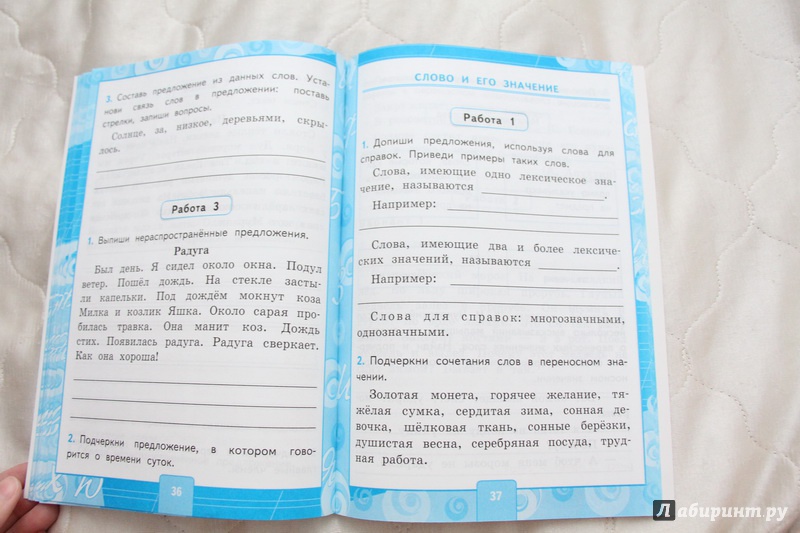 3. Составь предложение из данных слов. Уста-
нови связь слов в предложении: поставь
стрелки, запиши вопросы.
Солнце, за, низкое, деревьями, скры-
лось.
Работа 3
1. Выпиши нераспространённые предложения.
Радуга
Был день. Я сидел около окна. Подул
ветер. Пошёл дождь. На стекле засты-
ли капельки. Под дождём мокнут коза
Милка и козлик Яшка. Около сарая про-
билась травка. Она манит коз. Дождь
стих. Появилась радуга. Радуга сверкает.
Как она хороша!
2. Подчеркни предложение, в котором гово-
рится о времени суток.
36
СЛОВО И ЕГО ЗНАЧЕНИЕ
Работа 1
1. Допиши предложения, используя слова для
справок. Приведи примеры таких слов.
Слова, имеющие одно лексическое зна-
чение, называются
Например:
Слова, имеющие два и более лексичес-
ких значений, называются
Например:
Слова для справок: многозначными,
однозначными.
2. Подчеркни сочетания слов в переносном зна-
чении.
Золотая монета, горячее желание, тя-
жёлая сумка, сердитая зима, сонная де-
вочка, шёлковая ткань, сонные берёзки,
душистая весна, серебряная посуда, труд-
ная работа.
37
Лабиринт.ру